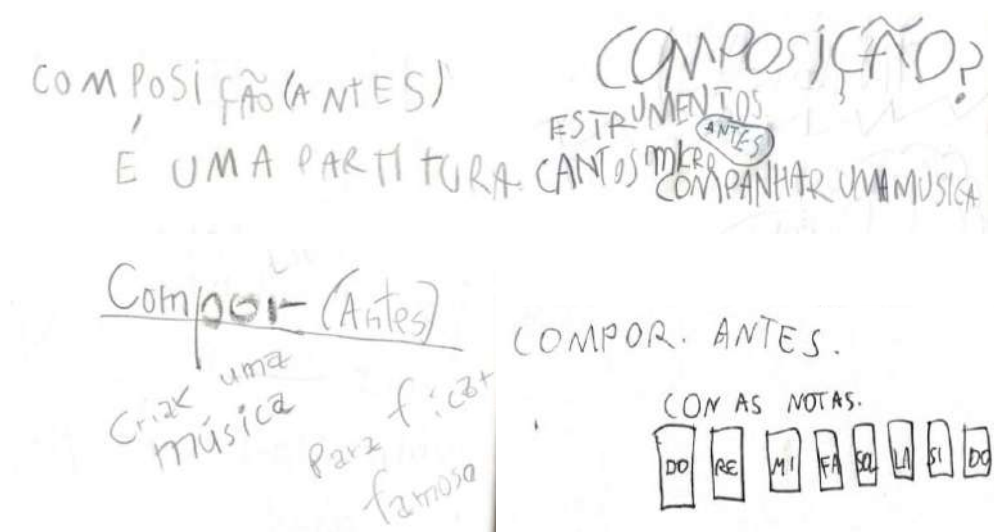 COMPOSIÇÃO (ANTES)
É UMA PARTITURA
COMPOSIÇÃO?
ESTRUMENTOS
ANTES
CANTOS
COMPANHAR UMA MUSICA
Compor (Antes)
Criar uma
música
para ficar
famoso
COMPOR. ANTES.
CON AS NOTAS.
DO RE MI FA SOL LA SI DO